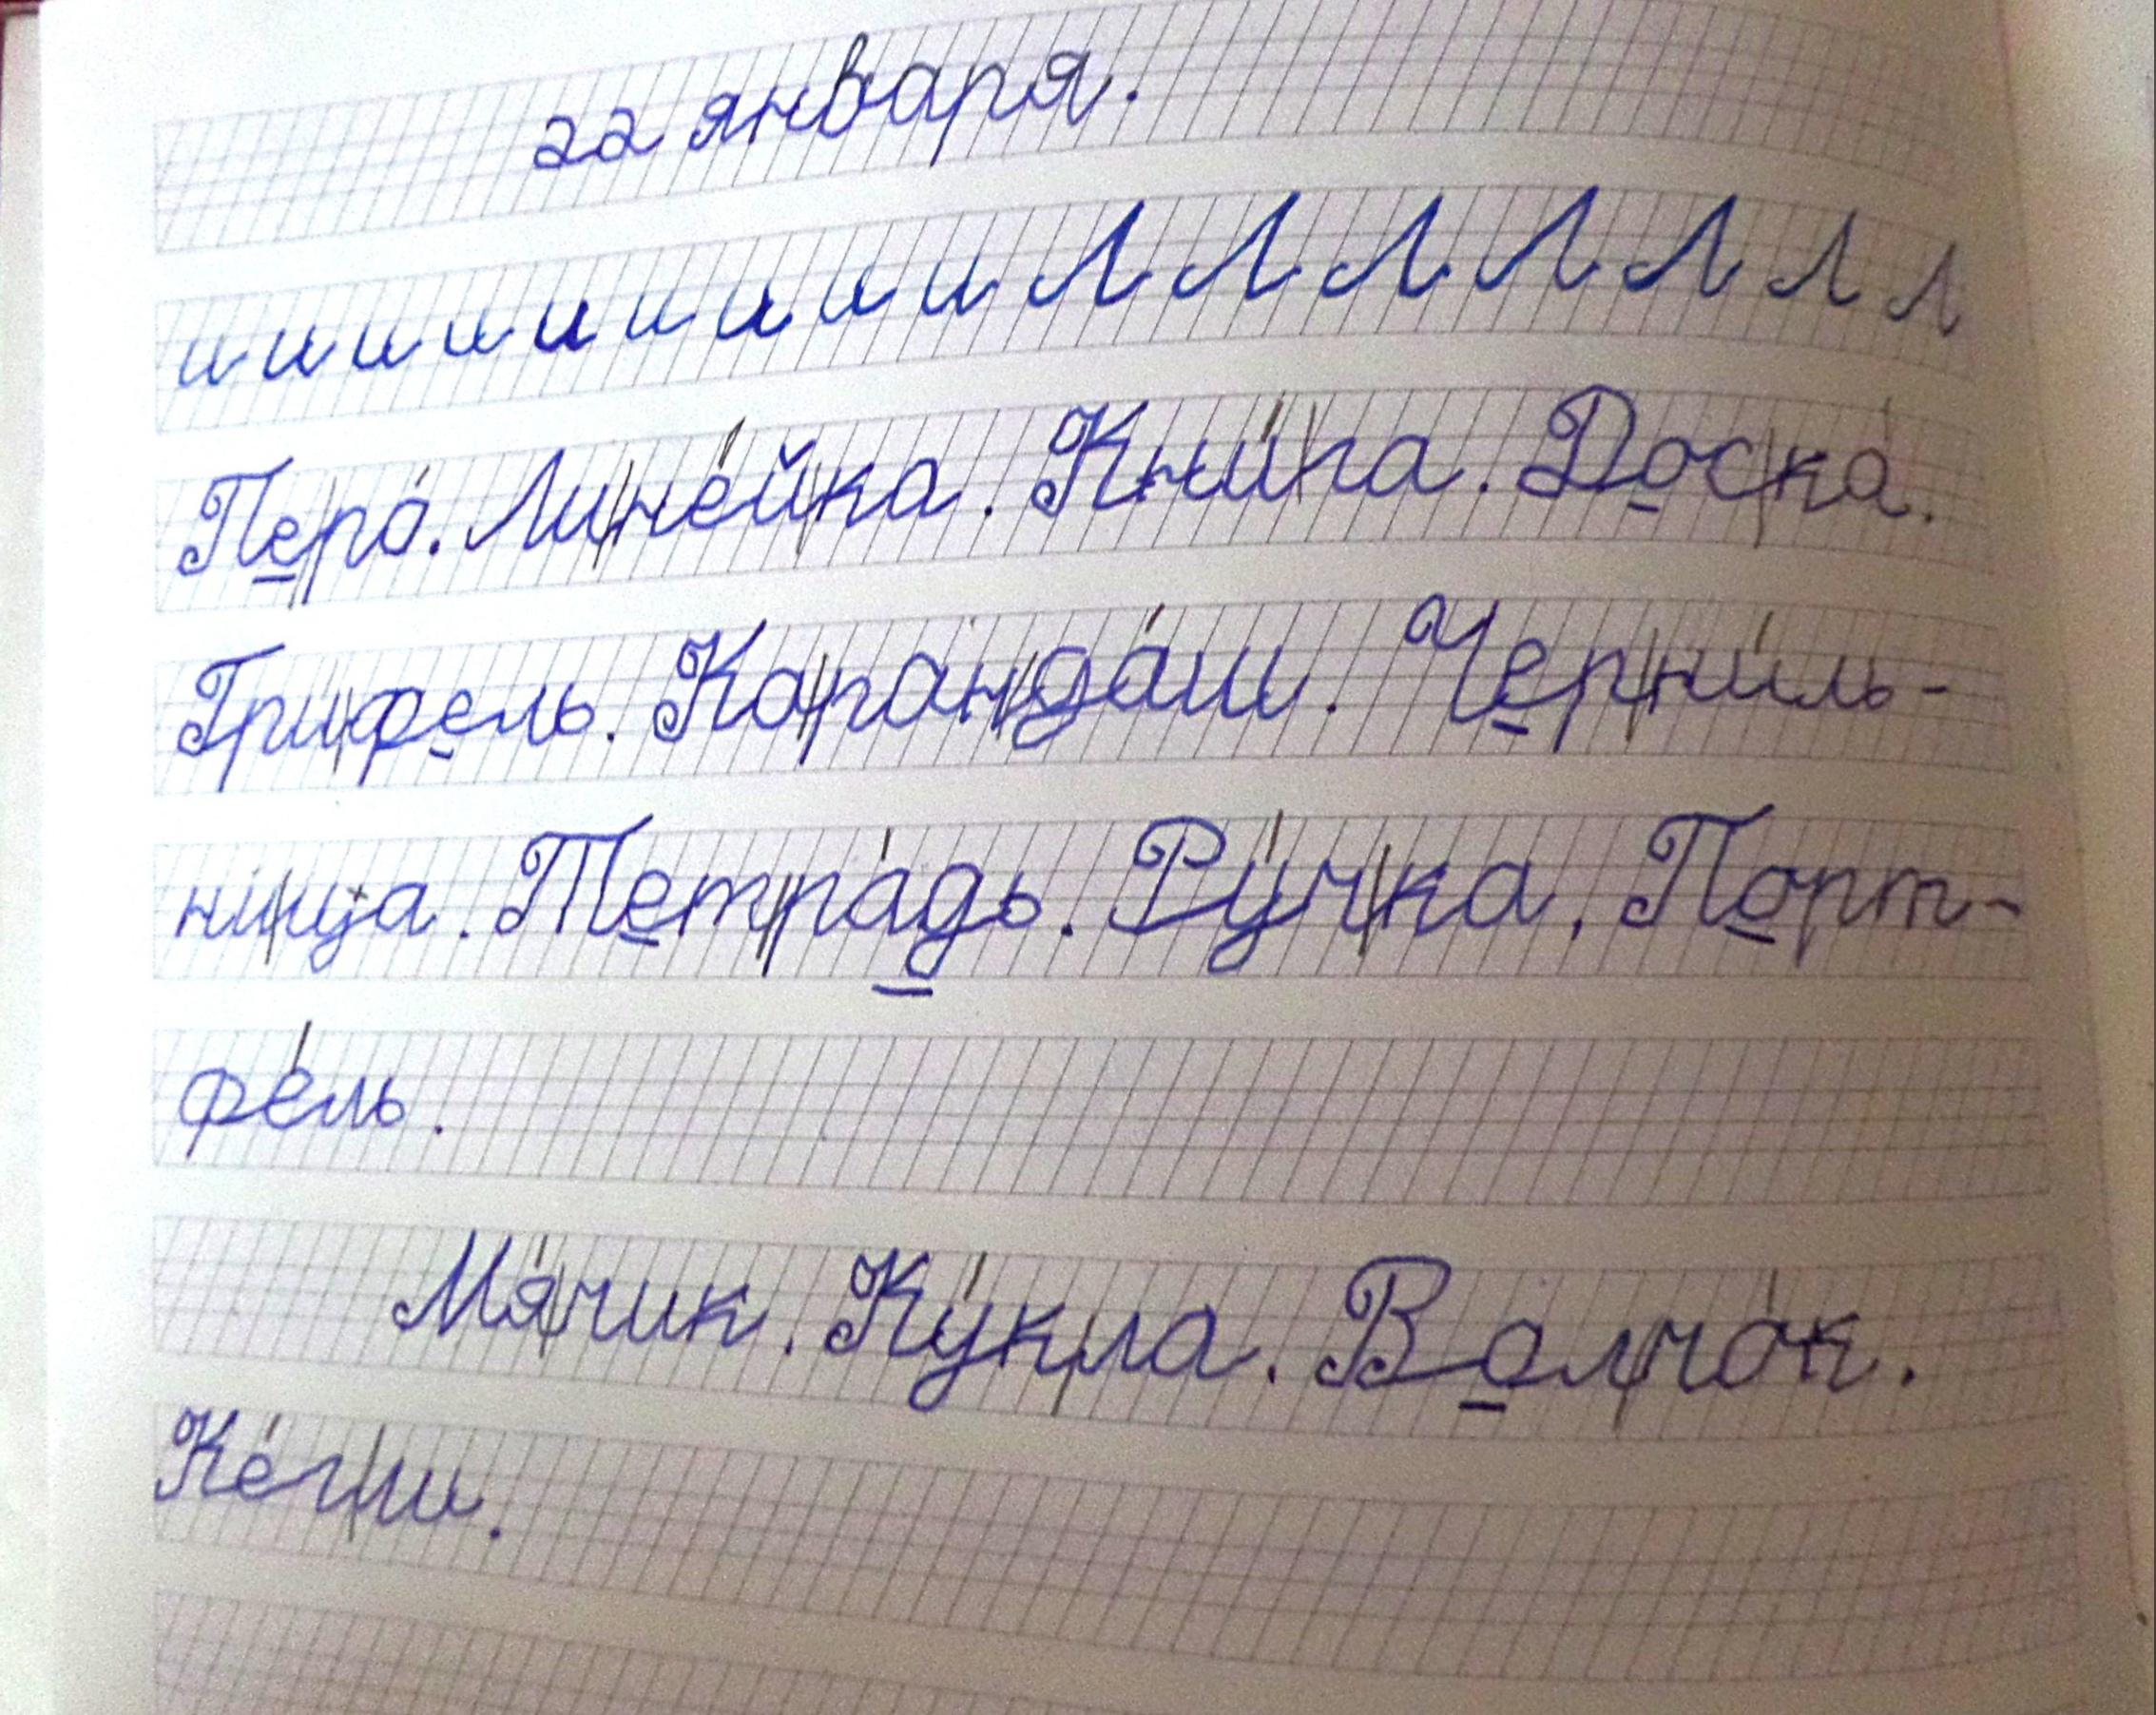 22 января.
и и и и и и и и и Л Л Л Л Л Л Л
Пе|ро́. Ли|не́й|ка. Кни́|га. Дос|ка́.
Гри|фель. Ка|ран|да́ш. Чер|ни́ль-
ни|ца. Тет|ра́дь. Ру́ч|ка. Порт-
фе́ль.
Мя́|чик. Ку́к|ла. Вол|чо́к.
Ке́г|ли.